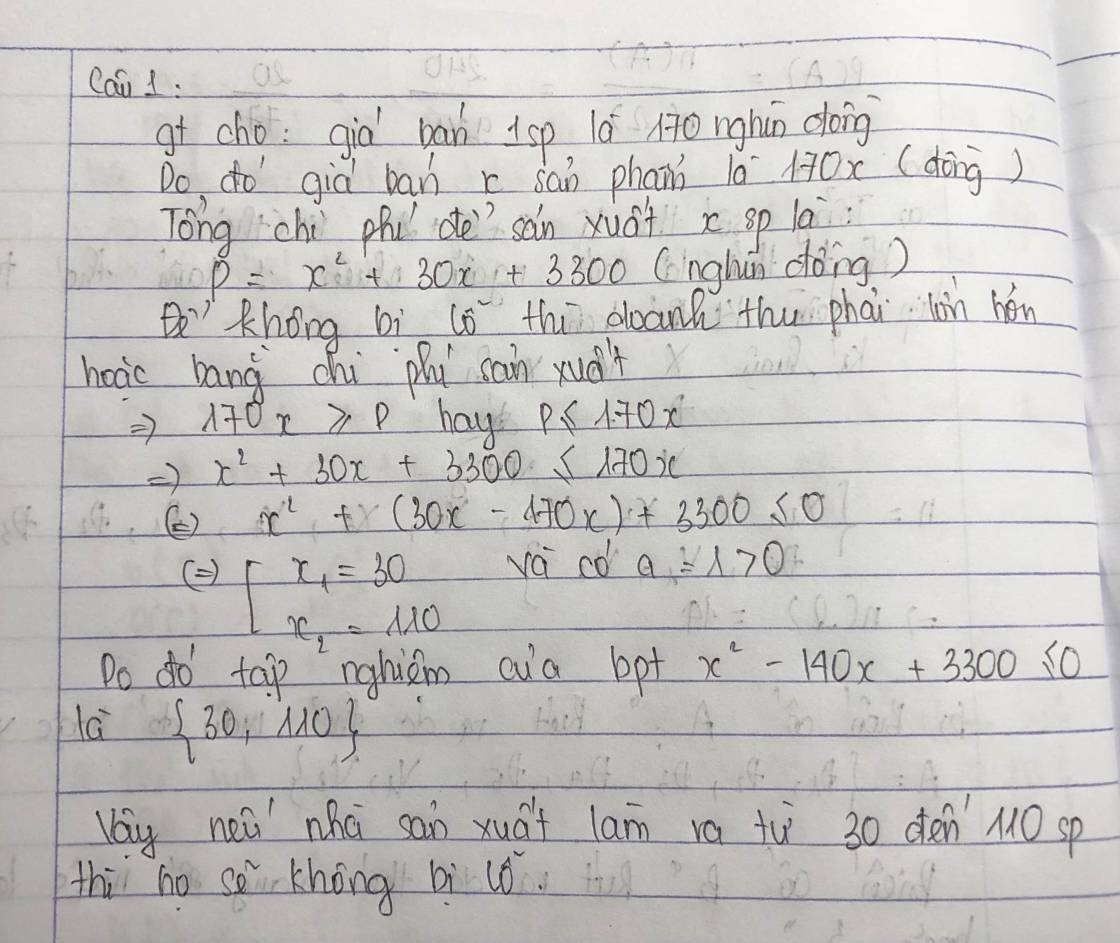 Câu 1:
gt cho: giá bán 1sp là 170 nghìn đồng
Do đó giá bán x sản phẩm là 170x (đồng)
Tổng chi phí để sản xuất x sp là:
P = x² + 30x + 3300 (nghìn đồng)
Để không bị lỗ thì doanh thu phải lớn hơn
hoặc bằng chi phí sản xuất
=> 170x ≥ P hay P ≤ 170x
=> x² + 30x + 3300 ≤ 170x
(=) x² + (30x - 170x) + 3300 ≤ 0
(=) [ x₁ = 30 và có a = 1 > 0
x₂ = 110
Do đó tập nghiệm của bpt x² - 140x + 3300 ≤ 0
là {30, 110}
Vậy nếu nhà sản xuất làm ra từ 30 đến 110 sp
thì họ sẽ không bị lỗ.